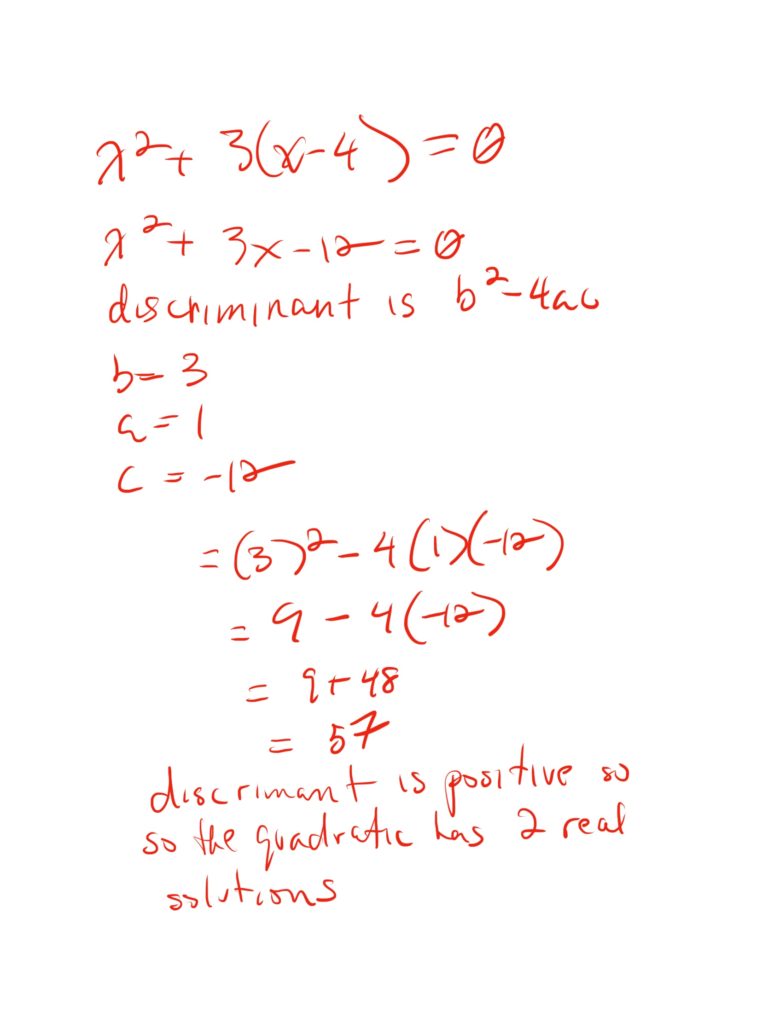 x²+ 3(x-4)=0
x²+ 3x-12=0
discriminant is b²-4ac
b= 3
a=1
c = -12
=(3)²-4(1)(-12)
= 9 - 4(-12)
= 9+48
= 57
discrimant is positive so
so the quadratic has 2 real
solutions